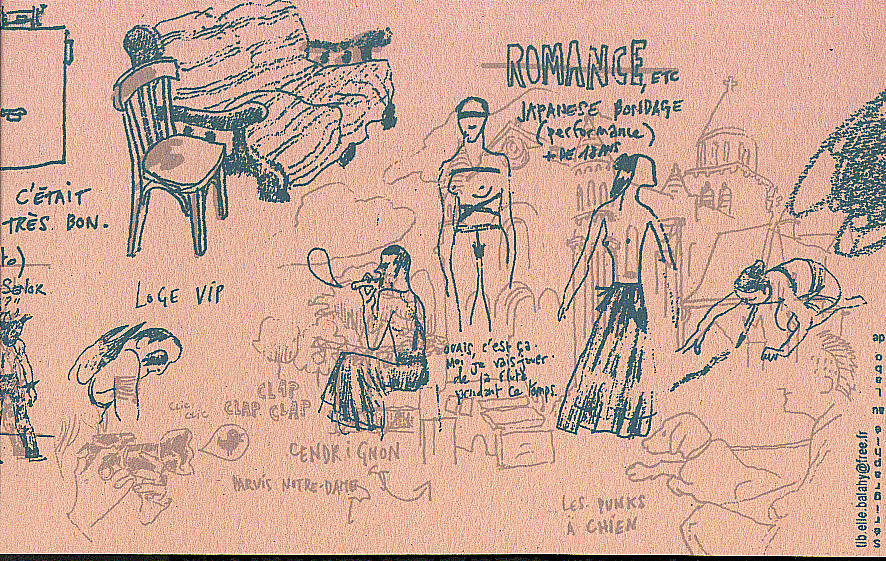 C'ÉTAIT
TRÈS BON.
LOGE VIP
ROMANCE, ETC
JAPANESE BONDAGE
(performance)
+ DE 18 ANS
ouais, c'est ça.
Moi je vais jouer
de la flûte
pendant ce temps.
CLIC
CLIC
CLAP
CLAP CLAP
CENDRiGNON
PARVIS NOTRE-DAME
LES PUNKS
À CHIEN
lib.elle.balahy@free.fr